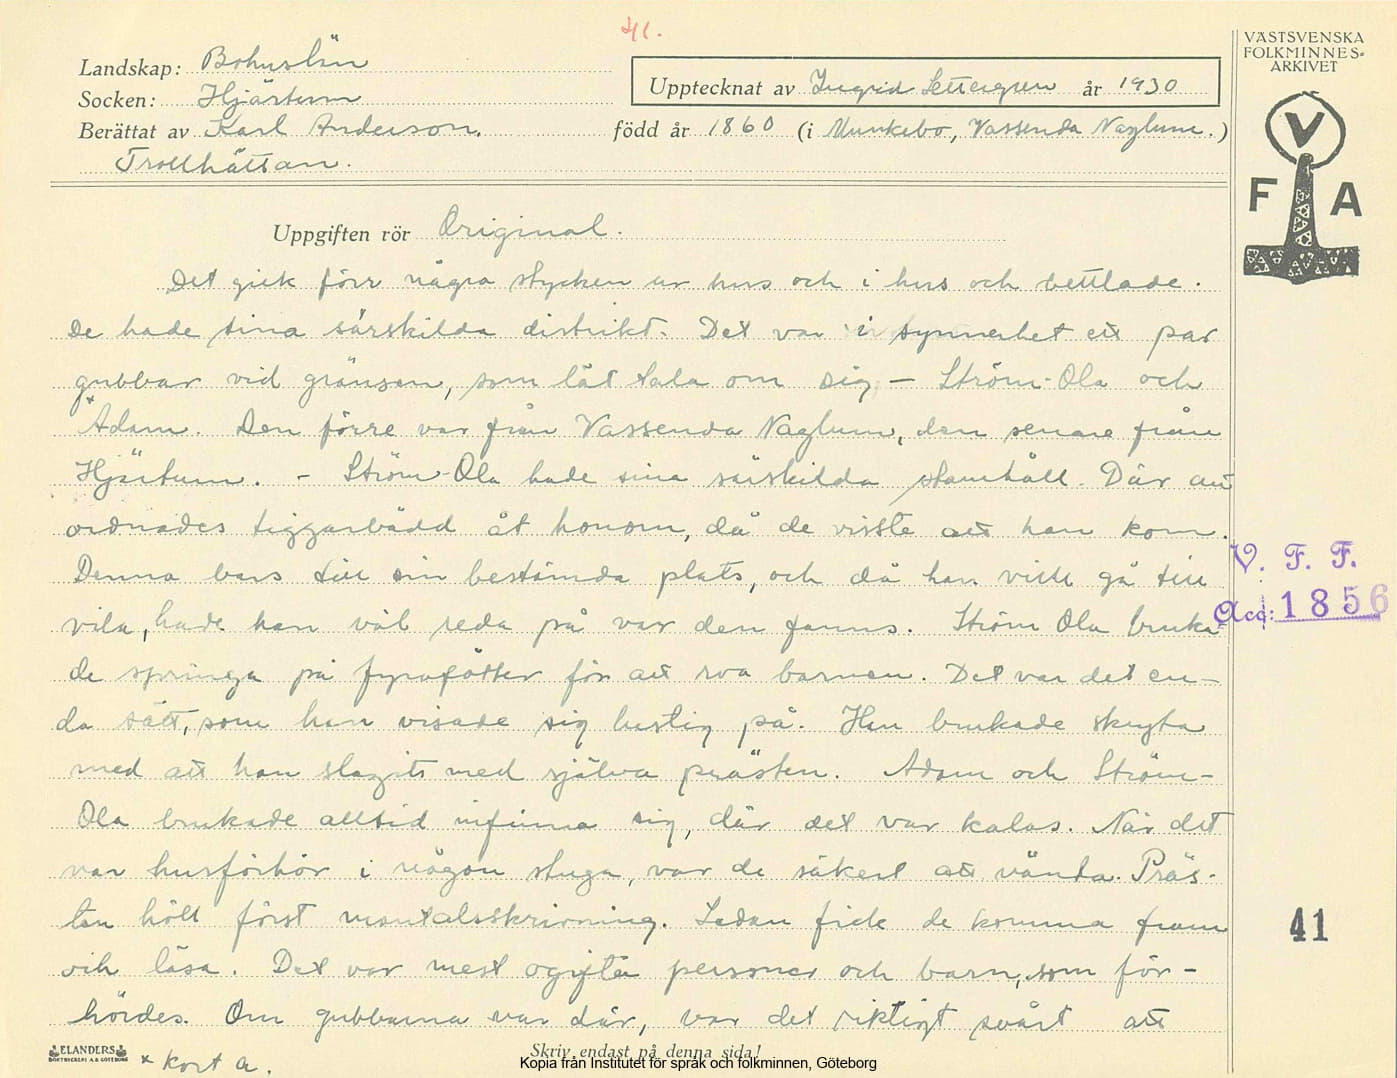 41.
VÄSTSVENSKA
FOLKMINNES-
ARKIVET
V
F A
Landskap: Bohuslän
Socken: Hjärtum
Upptecknat av Ingrid Settergren år 1930
Berättat av Karl Anderson. född år 1860 (i Munkebo, Vassenda Naglum.)
Trollhättan.
Uppgiften rör Original.
Det gick förr några stycken ur hus och i hus och bettlade.
De hade sina särskilda distrikt. Det var i synnerhet ett par
gubbar vid gränsen, som lät tala om sig, – Ström-Ola och
*Adam. Den förre var från Vassenda Naglum, den senare från
Hjärtum. – Ström-Ola hade sina särskilda stamhåll. Där an
ordnades tiggarbädd åt honom, då de visste att han kom.
Denna bars till sin bestämda plats, och då han ville gå till
vila, hade han väl reda på var den fanns. Ström Ola bruka
de springa på fyrafötter för att roa barnen. Det var det en-
da sätt, som han visade sig lustig på. Han brukade skryta
med att han slagits med själva prästen. Adam och Ström-
Ola brukade alltid infinna sig, där det var kalas. När det
var husförhör i någon stuga, var de säkert att vänta. Präs-
ten höll först mantalsskrivning. Sedan fick de komma fram
och läsa. Det var mest ogifta personer och barn, som för-
hördes. Om gubbarna var där, var det riktigt svårt att
V. F. F.
Acc: 1856
41
ELANDERS
BOKTRYCKERI A.B. GÖTEBORG
* kort a.
Skriv endast på denna sida!
Kopia från Institutet för språk och folkminnen, Göteborg